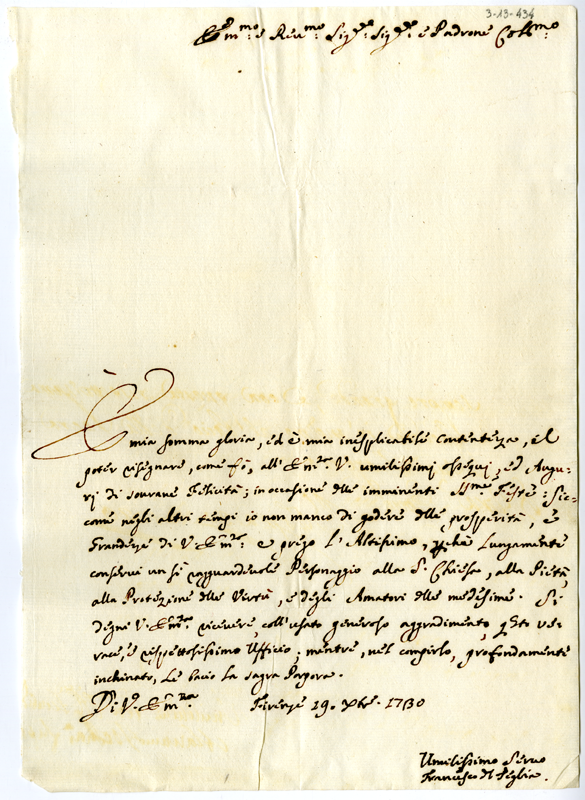 3-13-434
Em:mo e Reu:mo Sig:re Sig:re e Padrone Coll:mo
È mia somma gloria, ed è mia inesplicabile contentezza, il
poter risegnare, come fò, all' Em:za V. umilissimi ossequj, ed Augu-
rj di sourane Felicità; in occasione delle imminenti SS:me Feste: Sic-
come negli altri tempi io non manco di godere delle prosperità, e
Grandezze di V. Em:za: e prego l'Altissimo, perchè lungamente
conserui un sì ragguardeuole Personaggio alla S. Chiesa, alla Pietà,
alla Protezione delle Virtù, e degli Amatori delle medesime. Si
degni V. Em:za riceuere, coll'usato generoso aggradimento, q:sto ve-
race, e rispettosissimo Ufficio; mentre, nel compirlo, profondamente
inchinato, Le bacio la Sagra Porpora.
Di V. Em:za Firenze 19. Xbre. 1730
Umilissimo Seruo
Francesco